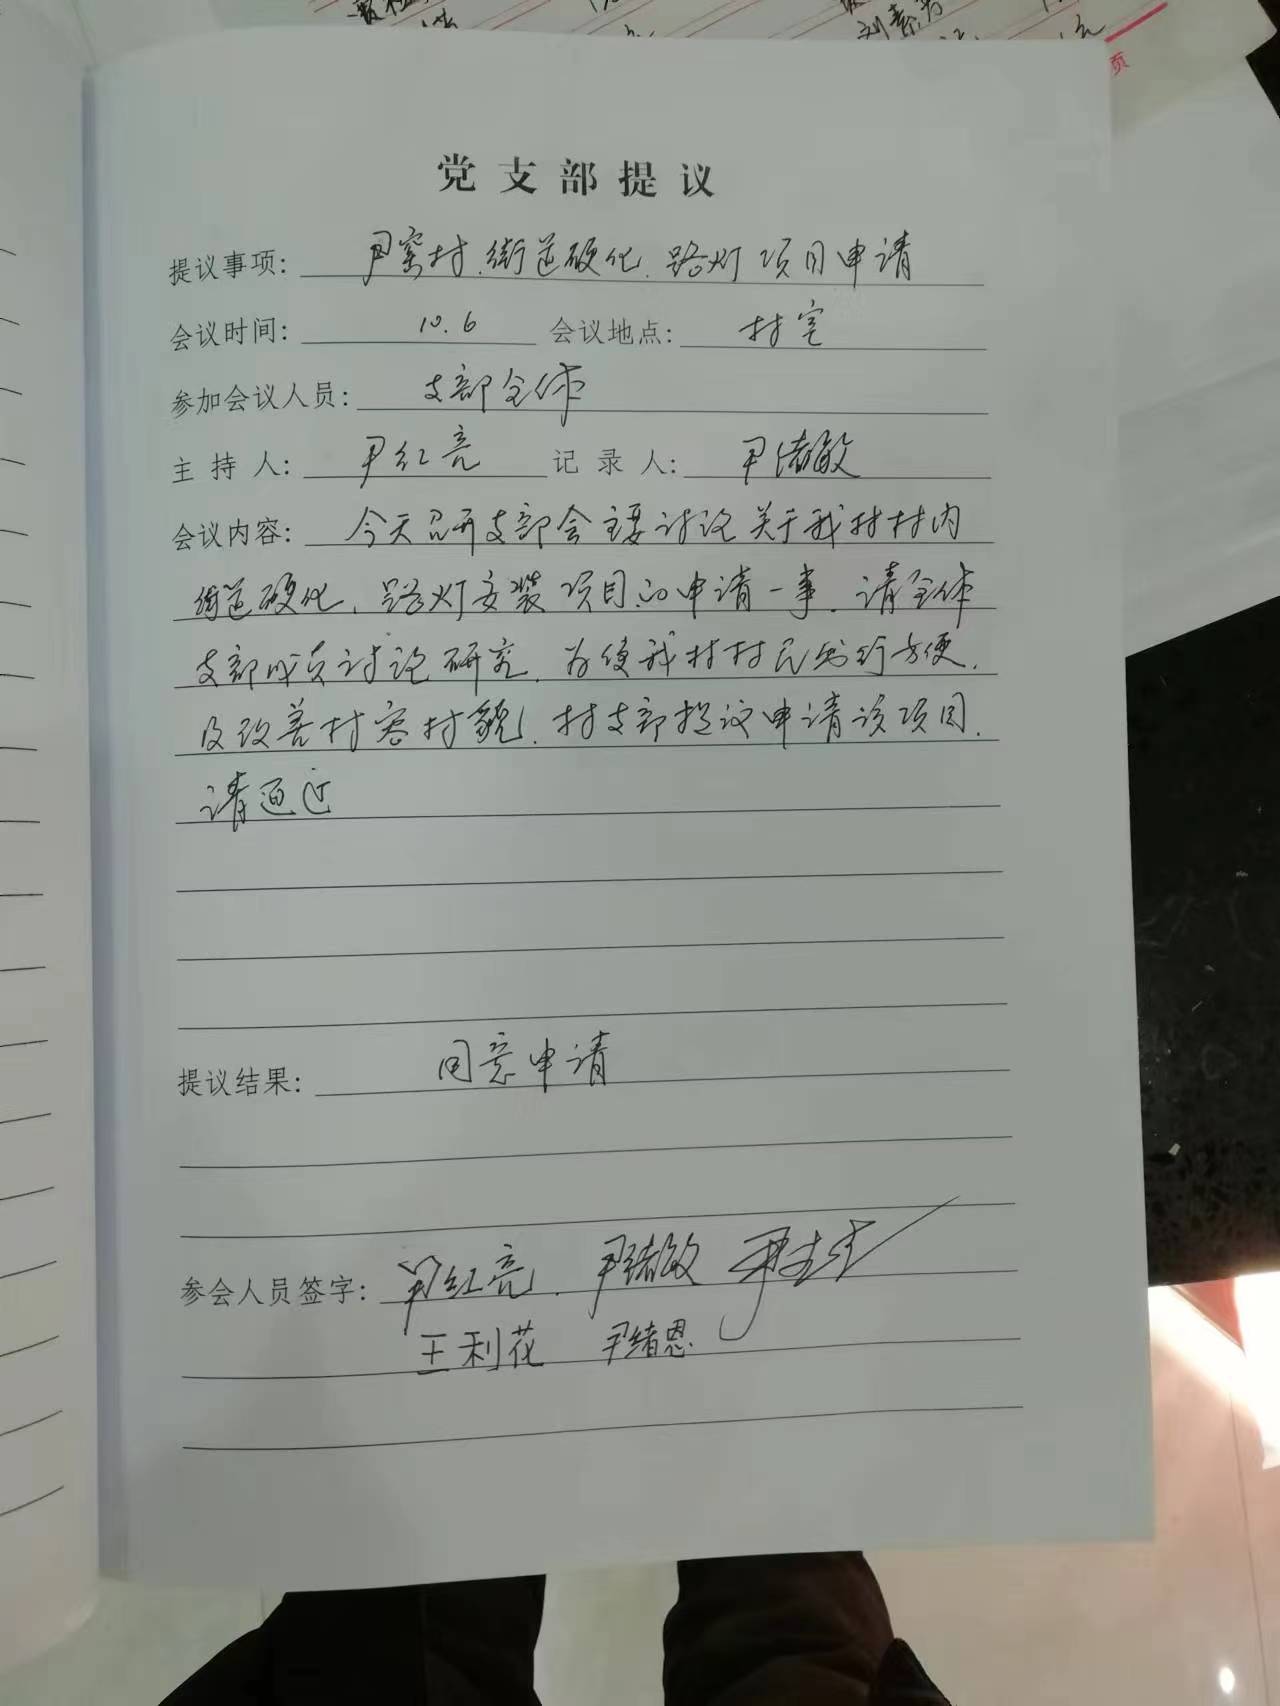 党支部提议
提议事项: 尹窑村街道硬化、路灯项目申请
会议时间: 10.6 会议地点: 村室
参加会议人员: 支部全体
主持人: 尹红亮 记录人: 尹绪敏
会议内容: 今天召开支部会主要讨论关于我村村内
街道硬化、路灯安装项目的申请一事。请全体
支部成员讨论研究,为使我村村民出行方便,
及改善村容村貌,村支部提议申请该项目,
请通过
提议结果: 同意申请
参会人员签字: 尹红亮 尹绪敏
王利花 尹绪恩
页